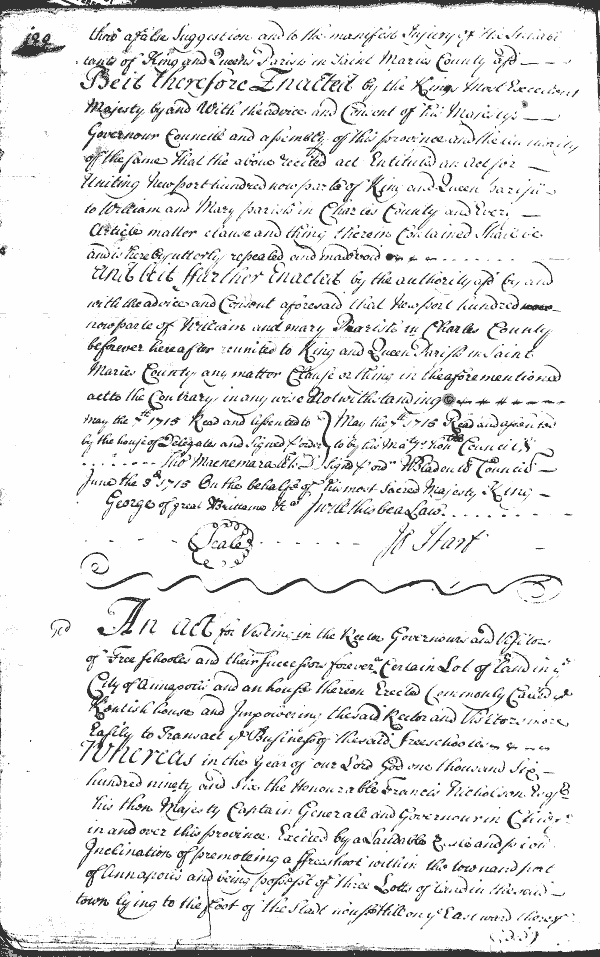 122
thro a false Suggestion and to the manifest Injury of the Inhabi
tants of King and Queens Parish in Saint Maries County afd
Be it therefore Enacted by the Kings Most Excellent
Majesty by and With the advice and Consent of his Majestys
Governour Councill and assembly of this province and the authority
of the same That the above recited act Entituled an act for
Uniting Newport hundred now parte of King and Queen parish
to William and Mary parish in Charles County and Every
Article matter clause and thing therein Contained Shall be
and is hereby utterly repealed and made void
And bee it ffurther Enacted by the authority afd by and
with the advice and Consent aforesaid that Newport hundred
now parte of William and mary Pearish in Charles County
be forever hereafter reunited to King and Queen Parish in Saint
Maries County any matter Clause or thing in the aforementioned
act to the Contrary in any wise Notwithstanding
may the 7th 1715 Read and assented to
by the house of Delegates and Signed p order
Tho Macnemara
May the 7th 1715 Read and assented
to by his Majtys honble Councill
Signed p ord W Bladen Cl Council
June the 3d 1715 On the behalfe of his most Sacred Majesty King
George of great Brittaine &c I will this be a Law
Seale
Jo Hart
An act for Vesting in the Rector Governours and Visitors
of Free schooles and their successors forever a Certain Lot of land in ye
City of Annapolis and an house thereon Erected Commonly Called ye
Kentish house and Impowering the said Rector and Visitors more
Easily to Transact ye Business of the said free schooles
Whereas in the Year of our Lord God one thousand Six
hundred ninety and Six the Honourable Francis Nicholson Esqr
his then Majesty Captain Generale and Governour in Cheife
in and over this province Excited by a Laudable Zeale and pious
Inclination of promoteing a ffreeschool within the town and port
of Annapolis and being possesst of three Lotts of land in the said
town lying to the foot of the Stadt house hill on ye Eastward thereof